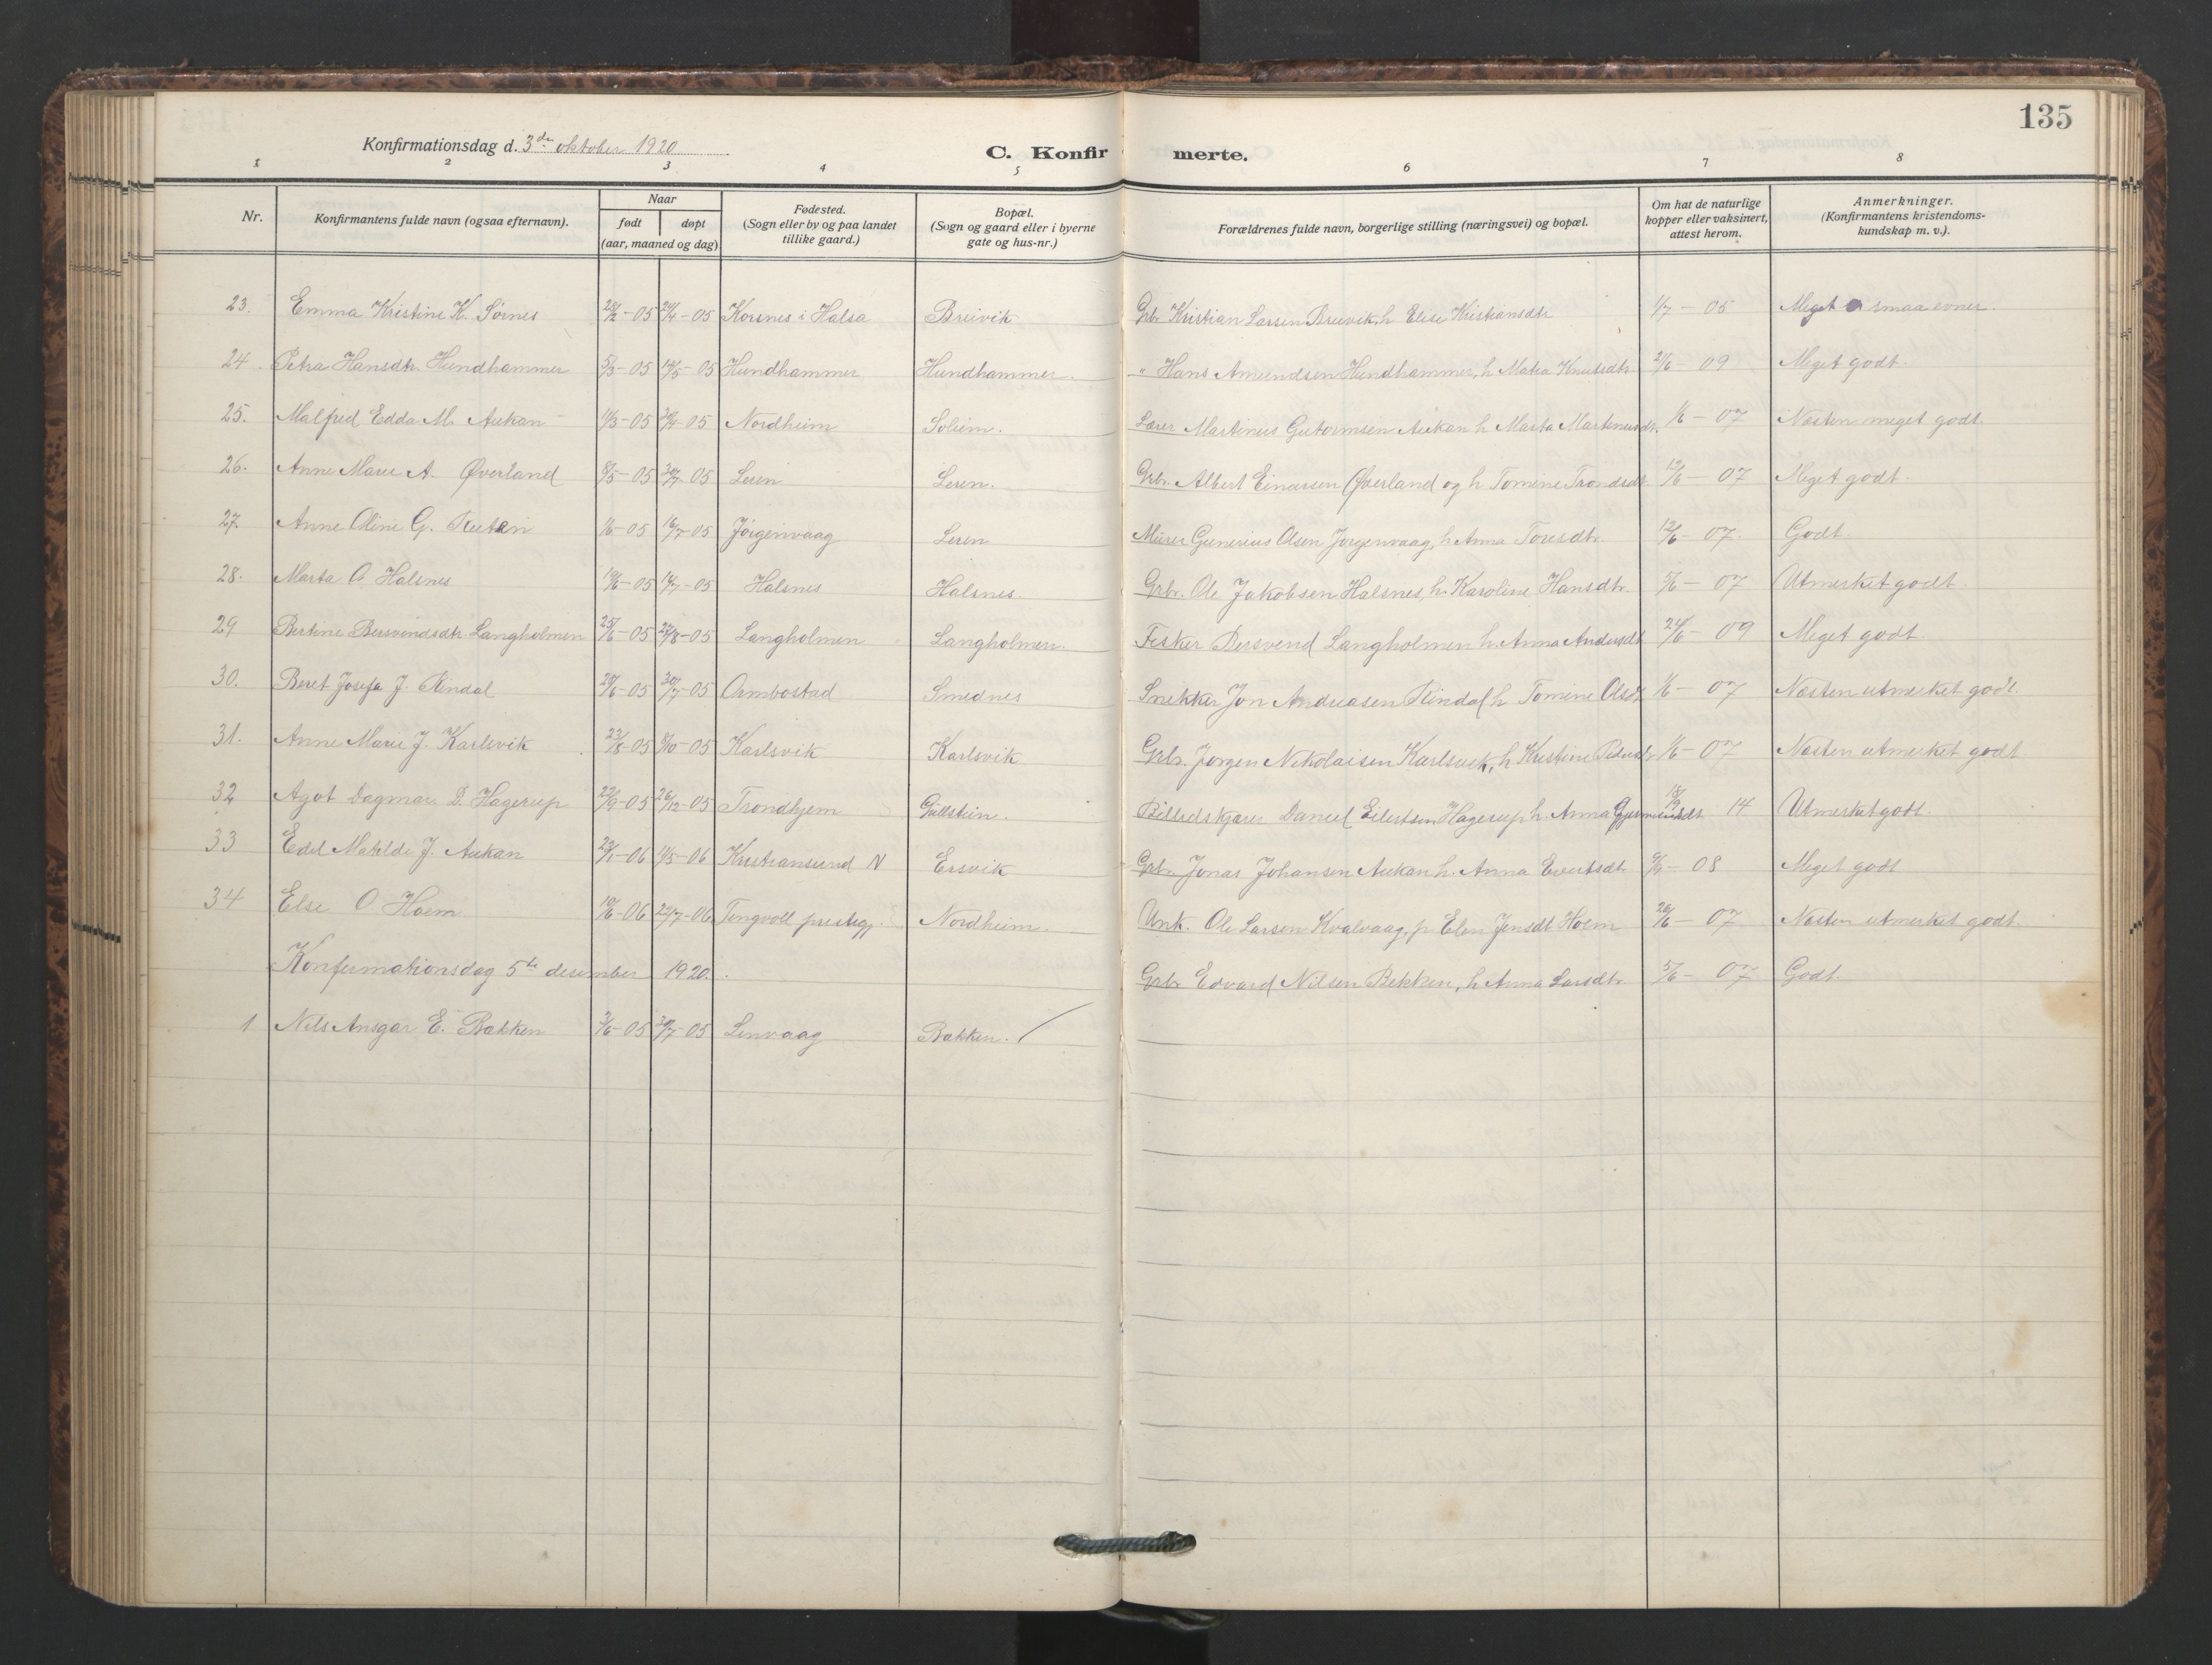 135
Konfirmationsdag d. 3de oktober 1920
C. Konfirmerte.
1 2 3 4 5 6 7 8
Nr. Konfirmantens fulde navn (ogsaa efternavn). Naar født døpt (aar, maaned og dag) Fødested. (Sogn eller by og paa landet tillike gaard.) Bopæl. (Sogn og gaard eller i byerne gate og hus-nr.) Forældrenes fulde navn, borgerlige stilling (næringsvei) og bopæl. Om hat de naturlige kopper eller vaksinert, attest herom. Anmerkninger. (Konfirmantens kristendoms-kundskap m. v.).
23. Emma Kristine K. Sørnes 28/2-05 24/4-05 Korsnes i Halsa Breivik Grbr Kristian Larsen Breivik, h Elise Kristiansdtr 1/7-05 Meget smaa evner.
24. Petra Hansdtr. Hundhammer 5/3-05 14/5-05 Hundhammer Hundhammer. " Hans Amundsen Hundhammer, h Matea Knutsdtr. 2/6-09 Meget godt.
25. Malfrid Edda M. Aukan 11/3-05 30/4-05 Nordheim Soliem. Lærer Martinus Gutormsen Aukan h Marta Martinusdtr. 1/6-07 Næsten meget godt.
26. Anne Marie A. Øverland 8/5-05 30/7-05 Leren Leren. Grbr. Albert Einarsen Øverland og h Tomine Trondsdtr 12/6-07 Meget godt.
27. Anne Oline G. 1/6-05 16/7-05 Jørgenvaag Leren Murer Gunerius Olsen Jørgenvaag, h Anna Toresdtr. 12/6-07. Godt.
28. Marta O. Halsnes 10/6-05 16/7-05 Halsnes Halsnes. Grbr. Ole Jakobsen Halsnes, h. Karoline Hansdtr. 5/6-07 Utmerket godt.
29 Bertine Bersvendsdtr Langholmen 25/6-05 27/8-05 Langholmen Langholmen. Fisker Bersvend Langholmen h. Anna Andersdtr 24/6-09 Meget godt.
30. Beret Josefa J. Rindal 28/6-05 30/7-05 Ormbostad Smednes Snekker Jon Andreasen Rindal h Tomine Olsdtr 1/6-07 Næsten utmerket godt.
31. Anne Marie J. Karlsvik 23/8-05 8/10-05 Karlsvik Karlsvik Grbr. Jørgen Nikolaisen Karlsvik, h Kristine Pedersdtr 1/6-07 Næsten utmerket godt.
32 Agot Dagmar D. Hagerup 22/9-05 26/12-05 Trondhjem Gullstein. Billedskjærer Daniel Eilertsen Hagerup h. Anna Gjermundsdtr 18/9 14 Utmerket godt.
33 Edel Matilde J. Aukan 23/1-06 1/5-06 Kristiansund N Ersvik Grbr. Jonas Johansen Aukan h. Anna Evertsdtr. 9/6-08 Meget godt
34 Else O. Hoem 10/6-06 29/7-06 Tingvoll prestegj. Nordheim. Unk. Ole Larsen Kvalvaag, p Elen Jensdt Hoem 26/6-07 Næsten utmerket godt.
Konfirmationsdag 5te desember 1920.
1 Nils Ansgar E. Bækken 3/6-05 30/7-05 Lenvaag Bækken. Grbr Edvard Nilsen Bekken, h Anna Larsdtr. 5/6-07 Godt.